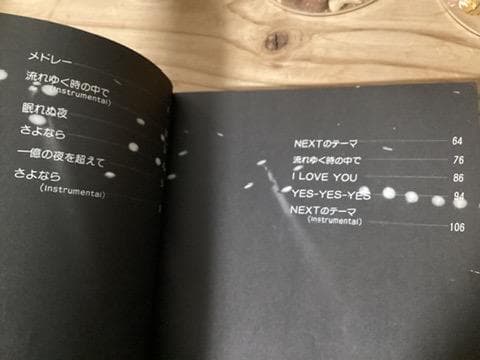 メドレー
流れゆく時の中で
(Instrumental)
眠れぬ夜
さよなら
一億の夜を超えて
さよなら
(Instrumental)
NEXTのテーマ 64
流れゆく時の中で 76
I LOVE YOU 86
YES-YES-YES 94
NEXTのテーマ
(Instrumental) 106